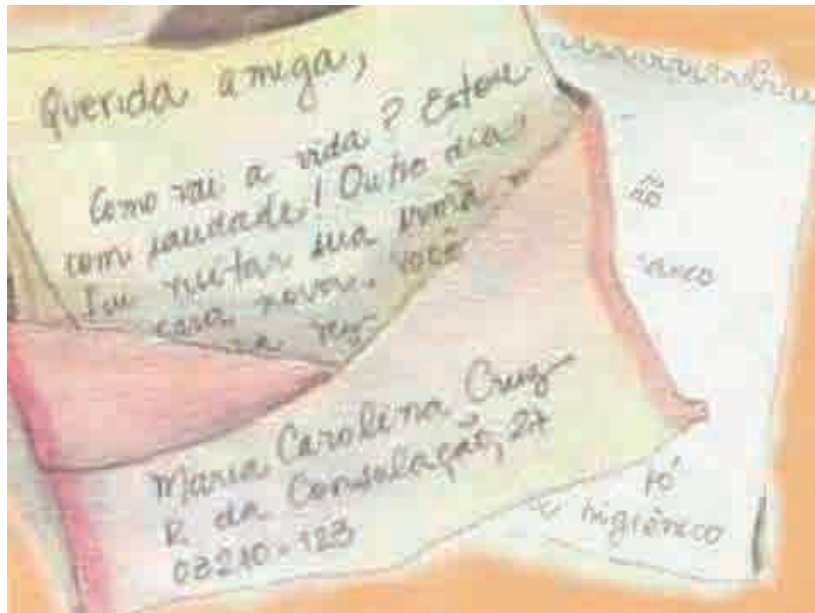 Querida amiga,
Como vai a vida? Estou
com saudade! Outro dia
fui visitar sua irmã
casa nova. você
Maria Carolina Cruz
R da Consolação, 27
03210-123
pó
higiênico